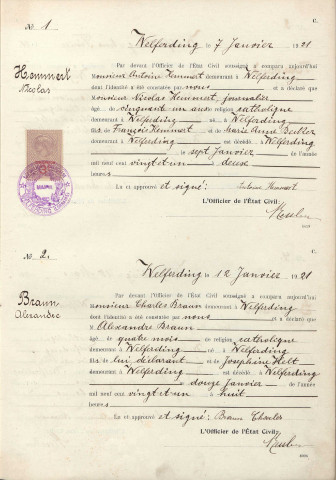 C.
№ 1
Welferding le 7 Janvier 1921
Hemmert
Nicolas
Par devant l'Officier de l'État Civil soussigné a comparu aujourd'hui
Monsieur Antoine Hemmert demeurant à Welferding
dont l'identité a été constatée par nous et a déclaré que
Monsieur Nicolas Hemmert, journalier
âgé de cinquante un ans religion catholique
demeurant à Welferding né à Welferding
fils de François Hemmert et de Marie Anne
demeurant à Welferding est décédé à Welferding
le sept Janvier de l'année
mil neuf cent vingt et un à deux
heures
Lu et approuvé et signé: Antoine Hemmert
L'Officier de l'État Civil:
C.
№ 2.
Welferding le 12 Janvier 1921
Braun
Alexandre
Par devant l'Officier de l'État Civil soussigné a comparu aujourd'hui
Monsieur Charles Braun demeurant à Welferding
dont l'identité a été constatée par nous et a déclaré que
Alexandre Braun
âgé de quatre mois de religion catholique
demeurant à Welferding né à Welferding
fils de lui déclarant et de Joséphine Helt
demeurant à Welferding est décédé à Welferding
le douze Janvier de l'année
mil neuf cent vingt et un à huit
heures
Lu et approuvé et signé: Braun Charles
L'Officier de l'État Civil: